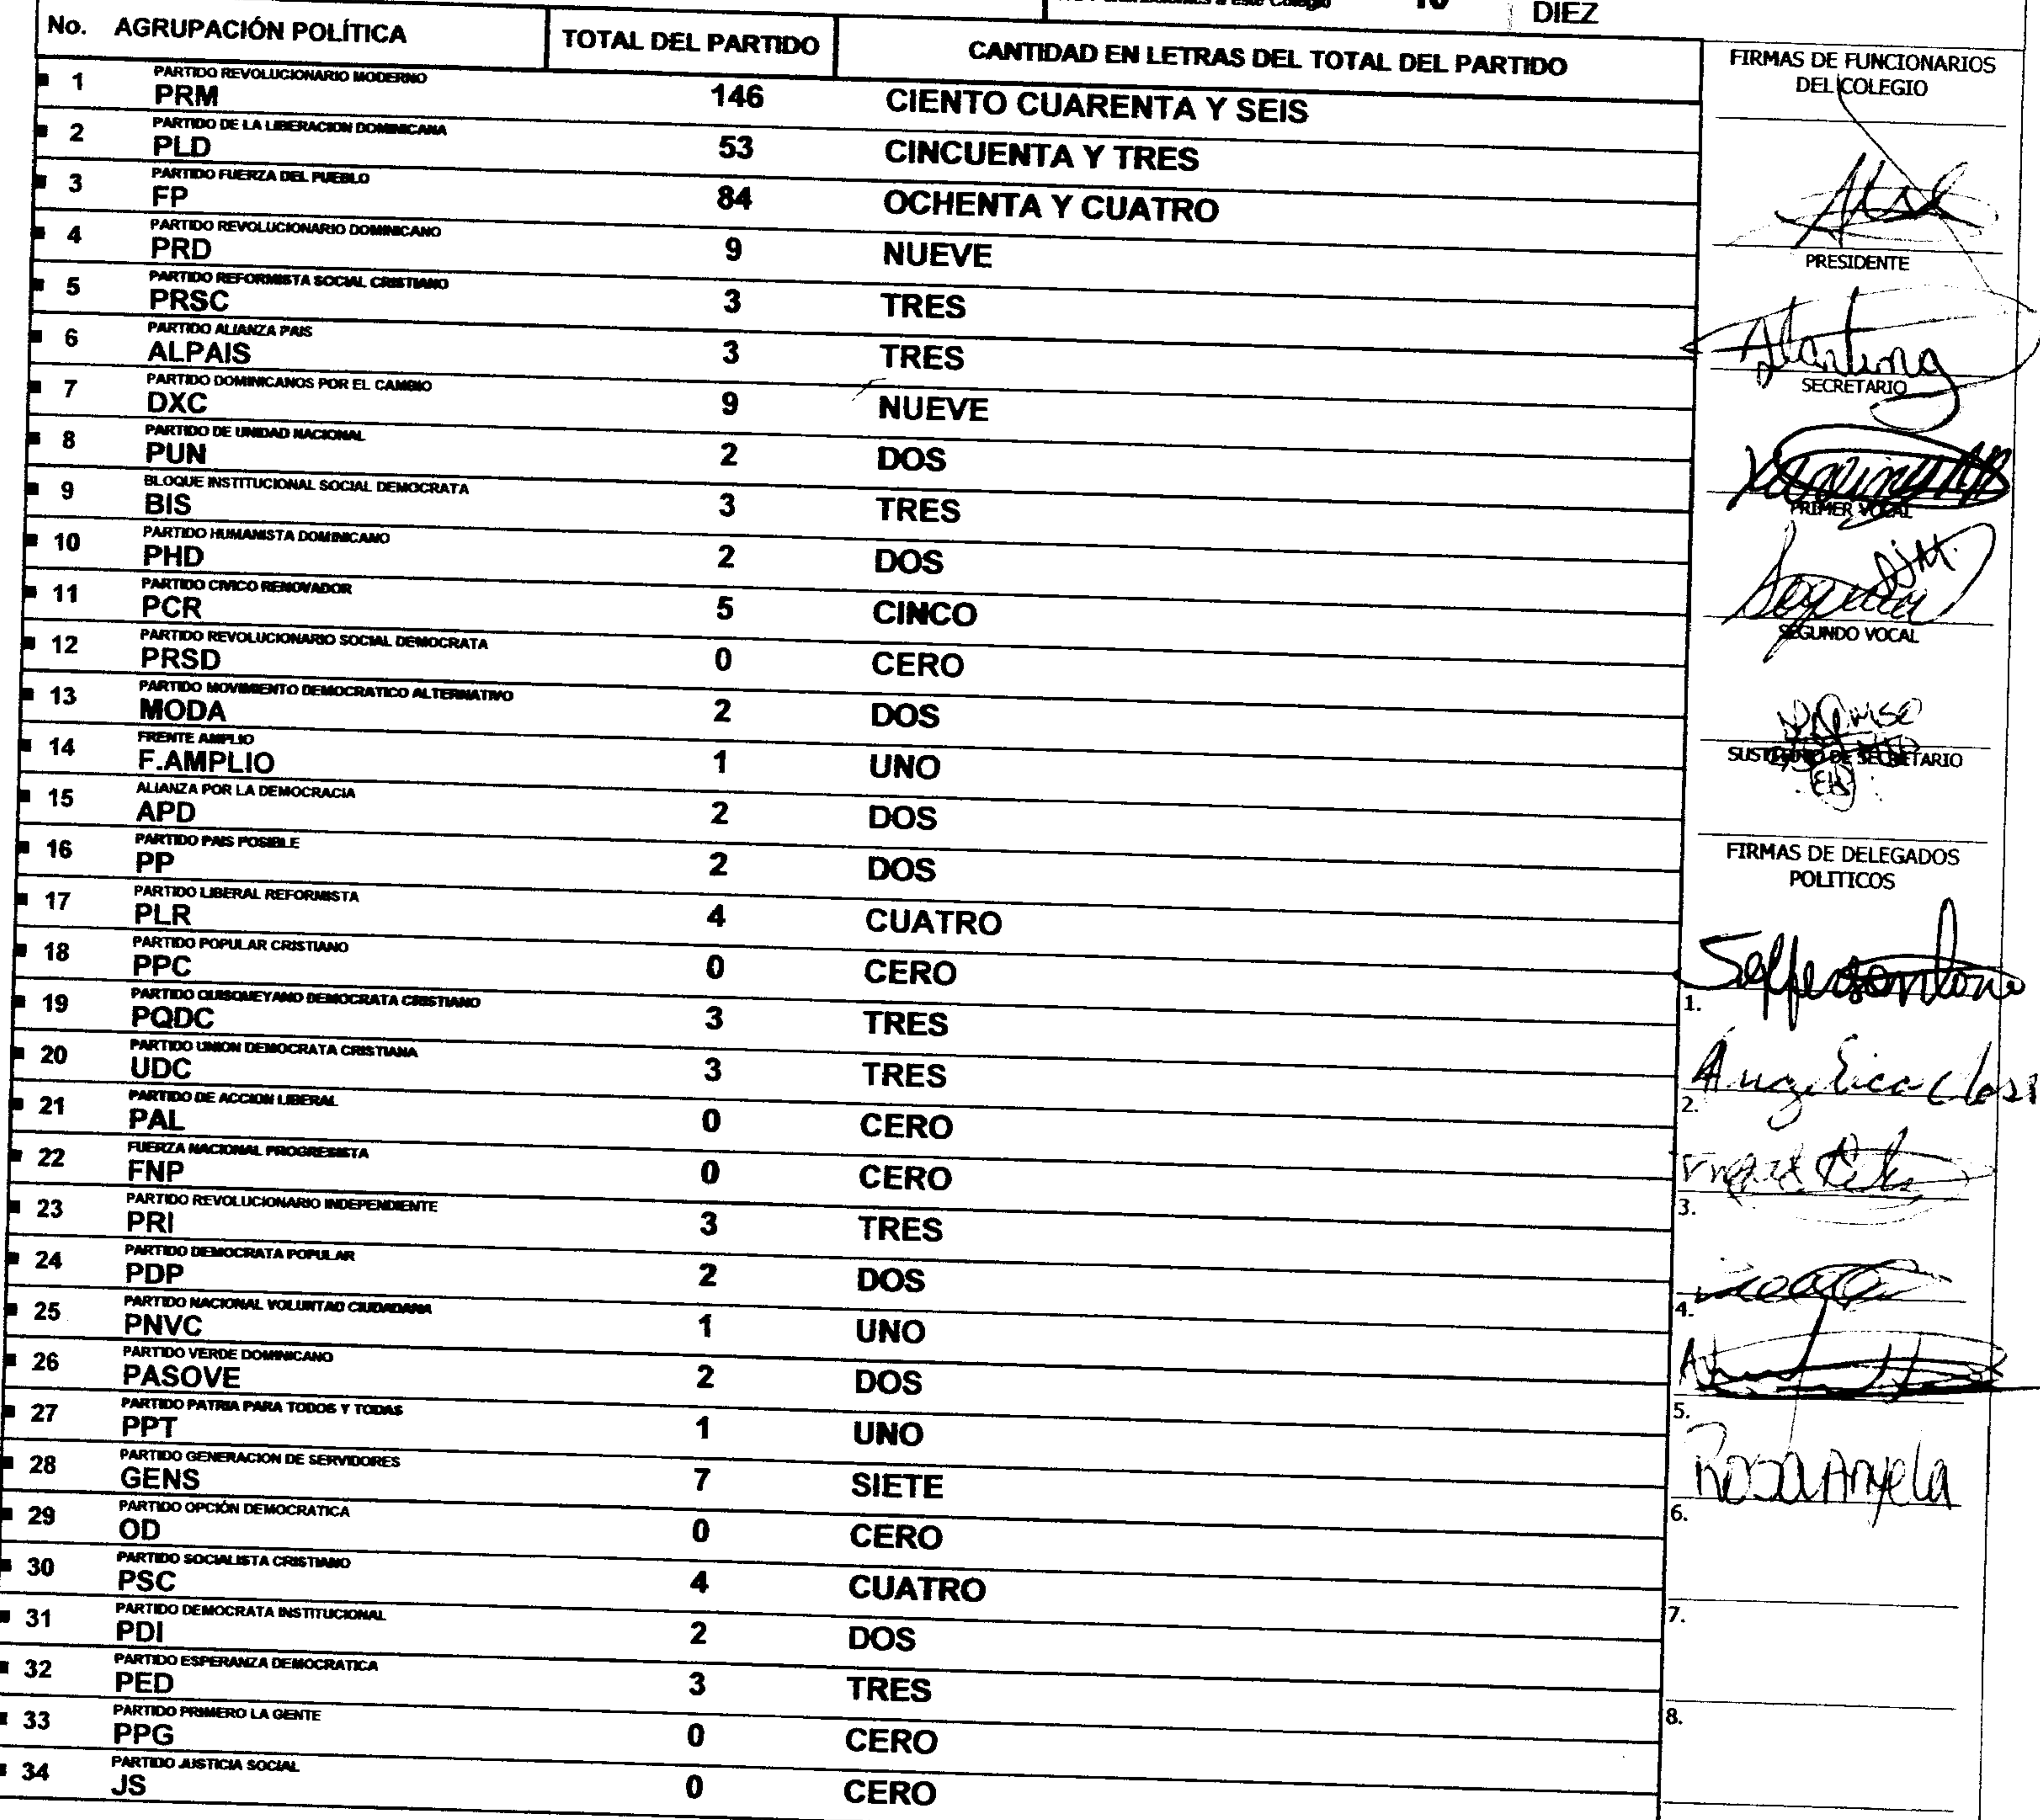 DIEZ
No. AGRUPACIÓN POLÍTICA TOTAL DEL PARTIDO CANTIDAD EN LETRAS DEL TOTAL DEL PARTIDO
PARTIDO REVOLUCIONARIO MODERNO
1 PRM 146 CIENTO CUARENTA Y SEIS
PARTIDO DE LA LIBERACION DOMINICANA
2 PLD 53 CINCUENTA Y TRES
PARTIDO FUERZA DEL PUEBLO
3 FP 84 OCHENTA Y CUATRO
PARTIDO REVOLUCIONARIO DOMINICANO
4 PRD 9 NUEVE
PARTIDO REFORMISTA SOCIAL CRISTIANO
5 PRSC 3 TRES
PARTIDO ALIANZA PAIS
6 ALPAIS 3 TRES
PARTIDO DOMINICANOS POR EL CAMBIO
7 DXC 9 NUEVE
PARTIDO DE UNIDAD NACIONAL
8 PUN 2 DOS
BLOQUE INSTITUCIONAL SOCIAL DEMOCRATA
9 BIS 3 TRES
PARTIDO HUMANISTA DOMINICANO
10 PHD 2 DOS
PARTIDO CIVICO RENOVADOR
11 PCR 5 CINCO
PARTIDO REVOLUCIONARIO SOCIAL DEMOCRATA
12 PRSD 0 CERO
PARTIDO MOVIMIENTO DEMOCRATICO ALTERNATIVO
13 MODA 2 DOS
FRENTE AMPLIO
14 F.AMPLIO 1 UNO
ALIANZA POR LA DEMOCRACIA
15 APD 2 DOS
PARTIDO PAIS POSIBLE
16 PP 2 DOS
PARTIDO LIBERAL REFORMISTA
17 PLR 4 CUATRO
PARTIDO POPULAR CRISTIANO
18 PPC 0 CERO
PARTIDO QUISQUEYANO DEMOCRATA CRISTIANO
19 PQDC 3 TRES
PARTIDO UNION DEMOCRATA CRISTIANA
20 UDC 3 TRES
PARTIDO DE ACCION LIBERAL
21 PAL 0 CERO
FUERZA NACIONAL PROGRESISTA
22 FNP 0 CERO
PARTIDO REVOLUCIONARIO INDEPENDIENTE
23 PRI 3 TRES
PARTIDO DEMOCRATA POPULAR
24 PDP 2 DOS
PARTIDO NACIONAL VOLUNTAD CIUDADANA
25 PNVC 1 UNO
PARTIDO VERDE DOMINICANO
26 PASOVE 2 DOS
PARTIDO PATRIA PARA TODOS Y TODAS
27 PPT 1 UNO
PARTIDO GENERACION DE SERVIDORES
28 GENS 7 SIETE
PARTIDO OPCIÓN DEMOCRATICA
29 OD 0 CERO
PARTIDO SOCIALISTA CRISTIANO
30 PSC 4 CUATRO
PARTIDO DEMOCRATA INSTITUCIONAL
31 PDI 2 DOS
PARTIDO ESPERANZA DEMOCRATICA
32 PED 3 TRES
PARTIDO PRIMERO LA GENTE
33 PPG 0 CERO
PARTIDO JUSTICIA SOCIAL
34 JS 0 CERO
FIRMAS DE FUNCIONARIOS
DEL COLEGIO
PRESIDENTE
SECRETARIO
PRIMER VOCAL
SEGUNDO VOCAL
SUSTITUTO DE SECRETARIO
FIRMAS DE DELEGADOS
POLITICOS
1.
Angelica
2.
3.
4.
5.
Rosa Angela
6.
7.
8.